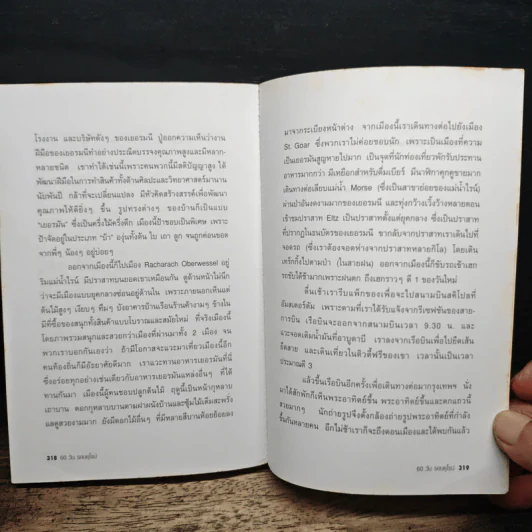 โรงงาน และบริษัทดังๆ ของเยอรมนี ปู่ออกความเห็นว่างาน
ฝีมือของเยอรมนีทำอย่างประณีตบรรจงคุณภาพสูงและมีหลาก
หลายชนิด เขาทำได้เช่นนี้เพราะคนพวกนี้มีสติปัญญาสูง ได้
พัฒนาฝีมือในการทำสินค้าทั้งด้านศิลปะและวิทยาศาสตร์มานาน
นับพันปี กล้าที่จะเปลี่ยนแปลง มีหัวคิดสร้างสรรค์เพื่อพัฒนา
คุณภาพให้ดียิ่งๆ ขึ้น รูปทรงต่างๆ ของบ้านก็เป็นแบบ
"เยอรมัน" ซึ่งเป็นครึ่งไม้ครึ่งตึก เมืองนี้ป้าชอบเป็นพิเศษ เพราะ
ป้าจัดอยู่ในประเภท "บ้า" องุ่นทั้งต้น ใบ เถา ลูก จนถูกค่อนขอด
จากพี่ๆ น้องๆ อยู่บ่อยๆ
ออกจากเมืองนี้ก็ไปเมือง Racharach Oberwessel อยู่
ริมแม่น้ำไรน์ มีปราสาทบนยอดเขาเหมือนกัน ดูด้านหน้าไม่นึก
ว่าจะมีเมืองแบบยุคกลางซ่อนอยู่ด้านใน เพราะภายนอกเห็นแต่
ต้นไม้สูงๆ เงียบๆ ทึมๆ บังอาคารบ้านเรือนร้านค้างามๆ ข้างใน
มีที่ซื้อของสนุกทั้งสินค้าแบบโบราณและสมัยใหม่ ที่จริงเมืองนี้
โดยภาพรวมสนุกและสวยกว่าเมืองที่ผ่านมาทั้ง 2 เมือง จน
พวกเราบอกกันเองว่า ถ้ามีโอกาสจะแวะมาเที่ยวเมืองนี้อีก
คนท้องถิ่นก็มีอัธยาศัยดีมาก เราแวะทานอาหารเยอรมันที่นี่
ซึ่งอร่อยทุกอย่างเช่นเดียวกับอาหารเยอรมันแหล่งอื่นๆ ที่ได้
ทานกันมา เมืองนี้ผู้คนชอบปลูกต้นไม้ ฤดูนี้เป็นหน้ากุหลาบ
เถาบาน ดอกกุหลาบบานตามฝาผนังบ้านและซุ้มไม้เต็มสะพรั่ง
แลดูสวยงามมาก ยังมีดอกไม้อื่นๆ ที่มีหลายสีบานห้อยย้อยลง
318 60 วัน รอบยุโรป
มาจากระเบียงหน้าต่าง จากเมืองนี้เราเดินทางต่อไปยังเมือง
St. Goar ซึ่งพวกเราไม่ค่อยชอบนัก เพราะเป็นเมืองที่ความ
เป็นเยอรมันสูญหายไปมาก เป็นจุดที่นักท่องเที่ยวพักรับประทาน
อาหารมากกว่า มีเหยือกสำหรับดื่มเบียร์ มีนาฬิกาคุกคูขายมาก
เดินทางต่อเลียบแม่น้ำ Morse (ซึ่งเป็นสาขาย่อยของแม่น้ำไรน์)
ผ่านป่าอันงดงามมากของเยอรมนี และทุ่งกว้างเวิ้งว้างพลายตอน
เข้าชมปราสาท Eltz เป็นปราสาทตั้งแต่ยุคกลาง ซึ่งเป็นปราสาท
ที่ปรากฏในธนบัตรของเยอรมนี ขากลับจากปราสาทเราเดินไปที่
จอดรถ (ซึ่งเราต้องจอดห่างจากปราสาทหลายกิโล) โดยเดิน
เหริกกิ้งไปตามป่า (ในสายฝน) ออกจากเมืองนี้ก็ขับรถเข้าเฮก
รถขับได้ช้ามากเพราะฝนตก ถึงเฮกราวๆ ตี 1 ของวันใหม่
ตื่นเช้าเรารีบแพ็กของเพื่อจะไปสนามบินสคิปโพลที่
อัมสเตอร์ดัม เพราะตามที่เราได้รับแจ้งจากรีเซพชันของสาย-
การบิน เรือบินจะออกจากสนามบินเวลา 9.30 น. และ
แวะจอดเติมน้ำมันที่อาบูดาบี เราลงจากเรือบินเพื่อไปยืดเส้น
ยืดสาย และเดินเที่ยวในดิวตี้ฟรีของเขา เวลานั้นเป็นเวลา
ประมาณตี 3
แล้วขึ้นเรือบินอีกครั้งเพื่อเดินทางต่อมากรุงเทพฯ นั่ง
มาได้สักพักก็เห็นพระอาทิตย์ขึ้น พระอาทิตย์ขึ้นและตกแถวนี้
สวยมากๆ นักถ่ายรูปจึงตั้งกล้องถ่ายรูปพระอาทิตย์ที่กำลัง
ขึ้นกันหลายคน อีกไม่ช้าเราก็จะถึงดอนเมืองและได้พบกันแล้ว
60 วัน รอบยุโรป 319